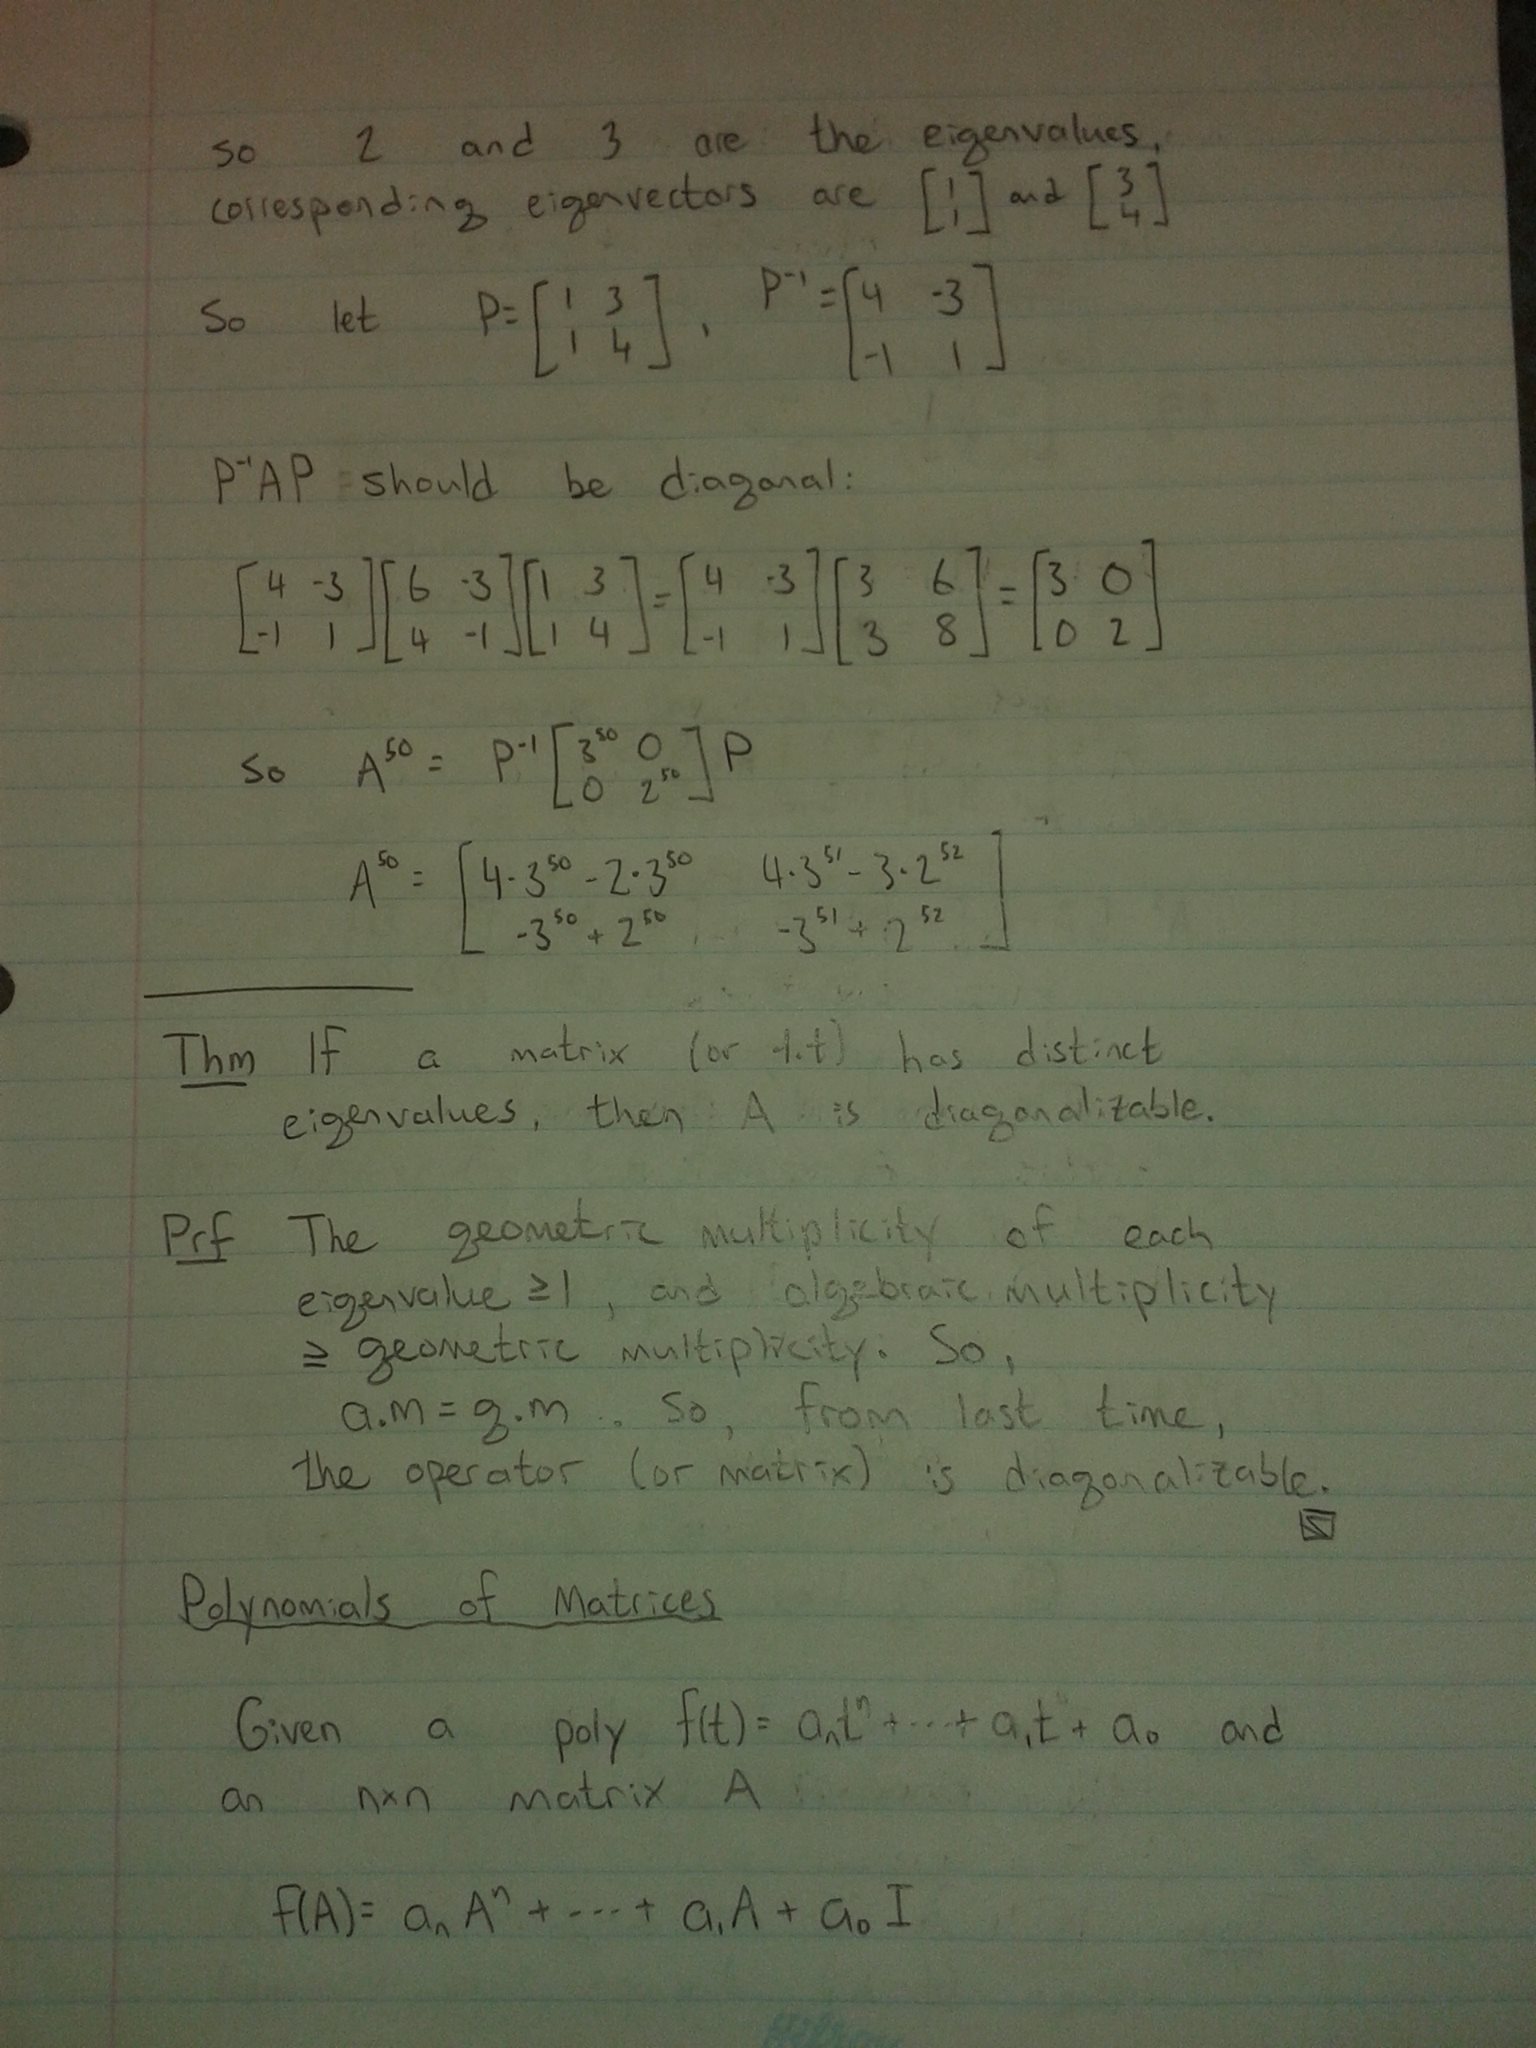 so 2 and 3 are the eigenvalues,
corresponding eigenvectors are [1 1] and [3 4]
So let P= [1 3 1 4] , P⁻¹= [4 -3 -1 1]
P⁻¹AP should be diagonal:
[4 -3 -1 1] [6 -3 4 -1] [1 3 1 4] = [4 -3 -1 1] [3 6 3 8] = [3 0 0 2]
So A⁵⁰ = P⁻¹ [3⁵⁰ 0 0 2⁵⁰] P
A⁵⁰ = [4·3⁵⁰ - 2·3⁵⁰ 4·3⁵¹ - 3·2⁵²
-3⁵⁰ + 2⁵⁰ -3⁵¹ + 2⁵²]
Thm If a matrix (or l.t) has distinct
eigenvalues, then A is diagonalizable.
Prf The geometric multiplicity of each
eigenvalue ≥1, and algebraic multiplicity
≥ geometric multiplicity. So,
a.m = g.m . So, from last time,
the operator (or matrix) is diagonalizable.
Polynomials of Matrices
Given a poly f(t)= aₙtⁿ+···+ a₁t + a₀ and
an n×n matrix A
f(A)= aₙAⁿ + ---+ a₁A + a₀I